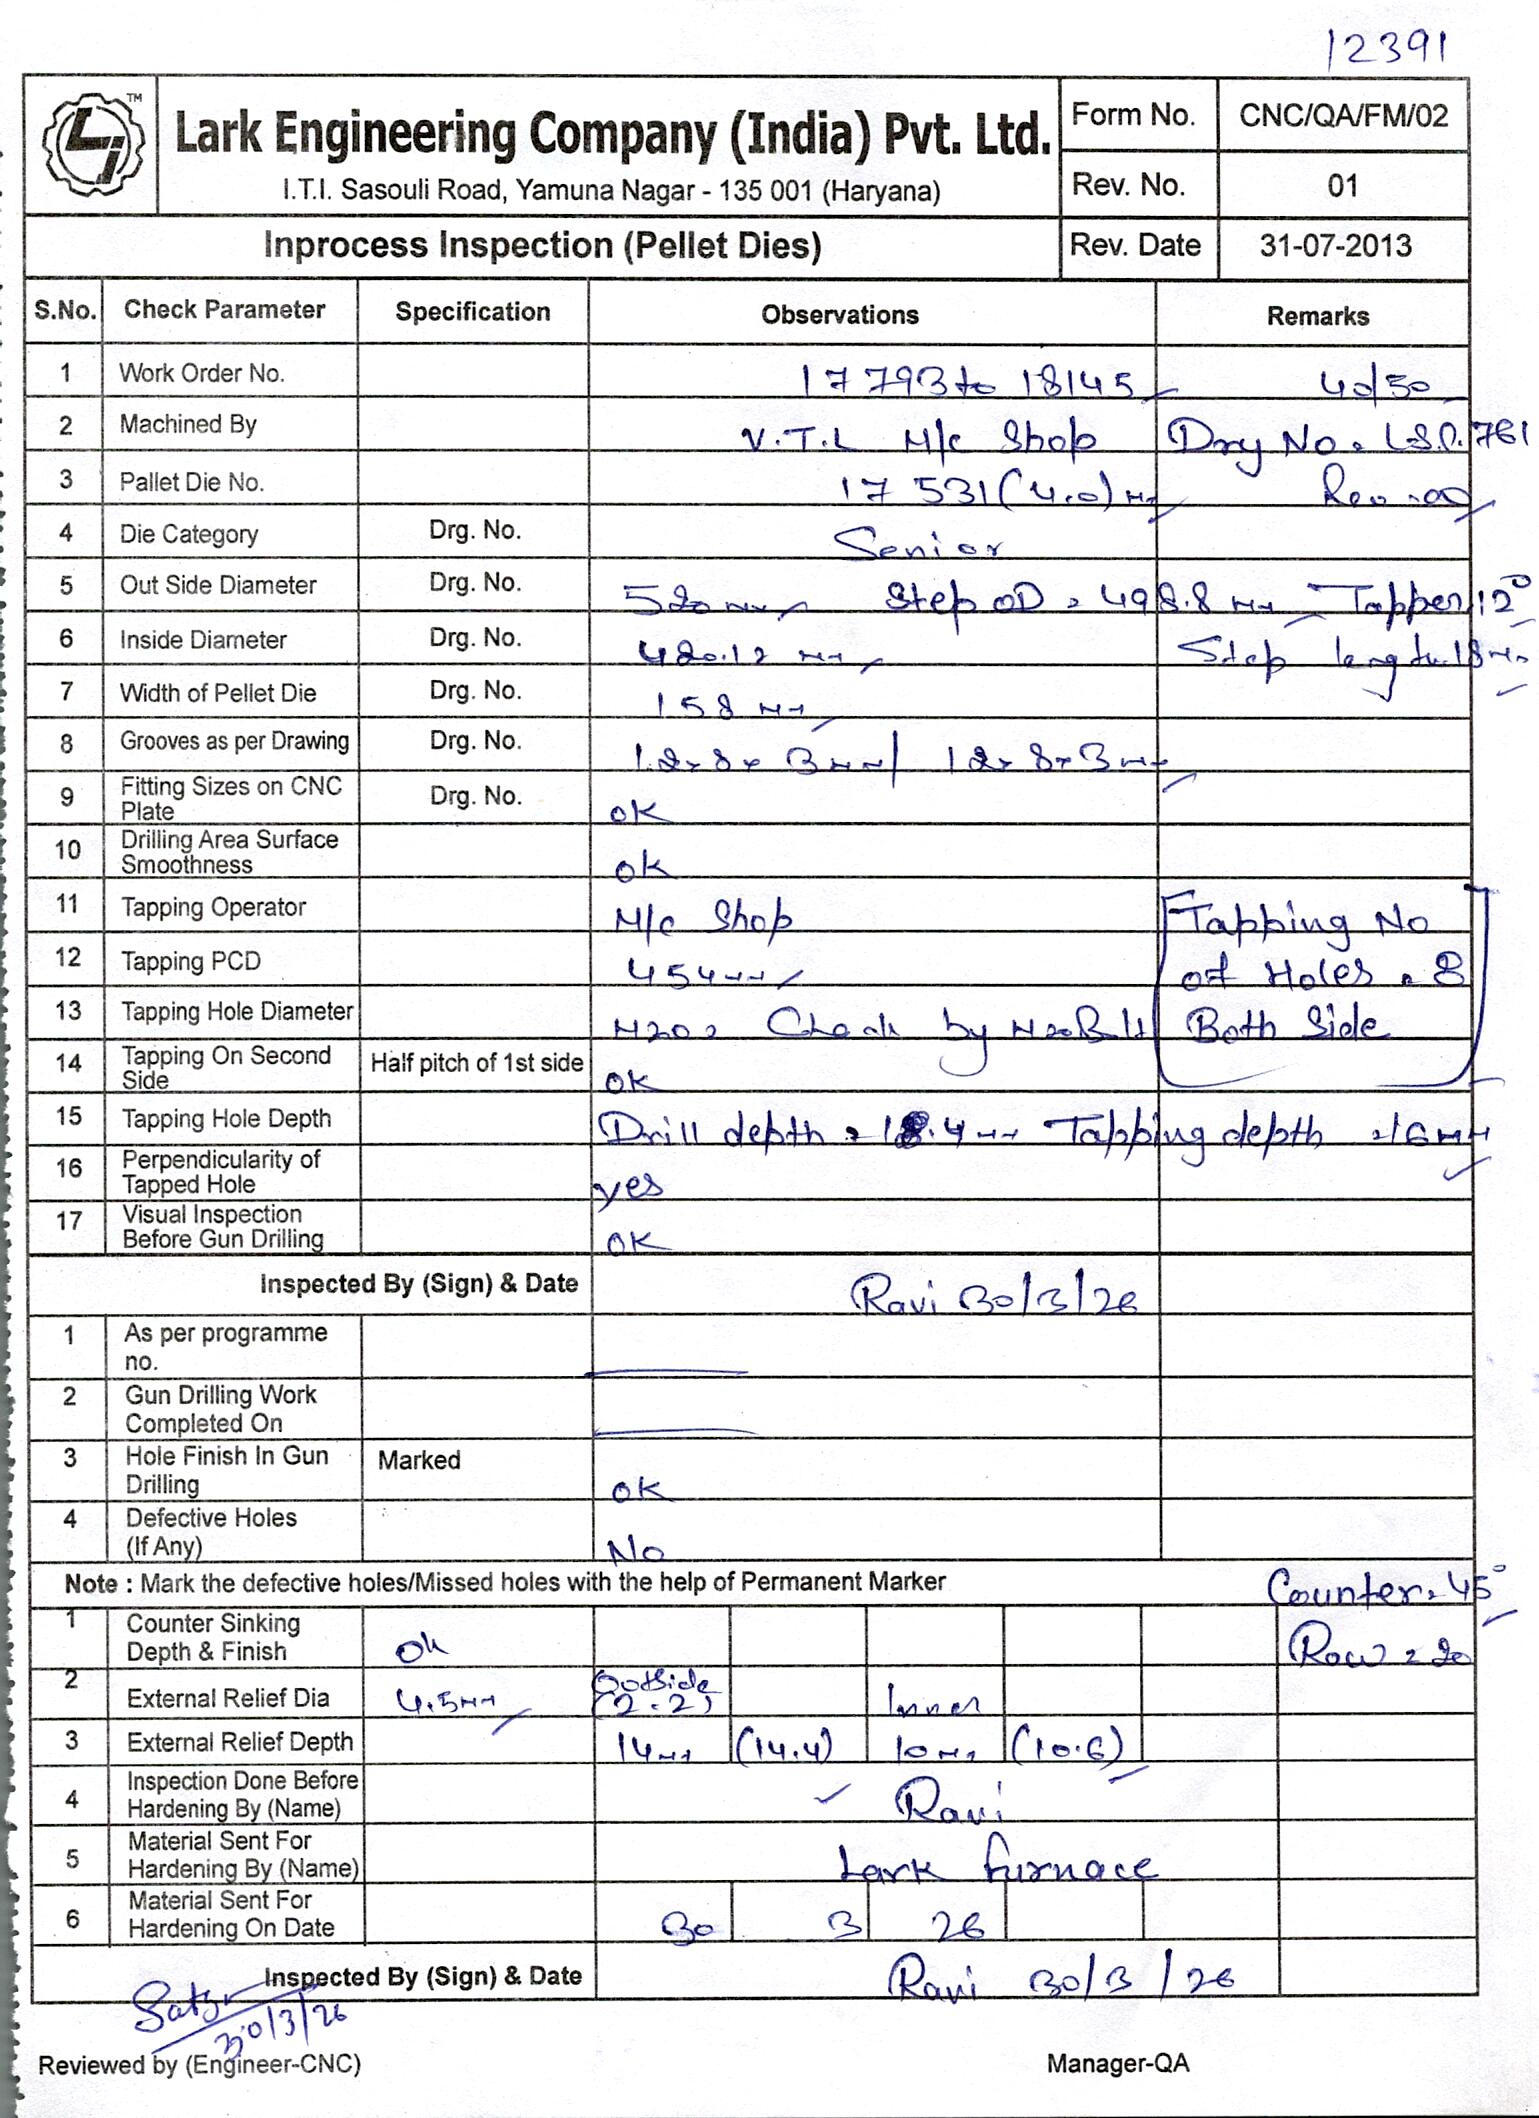 12391
TM
Lark Engineering Company (India) Pvt. Ltd.
I.T.I. Sasouli Road, Yamuna Nagar - 135 001 (Haryana)
Form No. CNC/QA/FM/02
Rev. No. 01
Inprocess Inspection (Pellet Dies)
Rev. Date 31-07-2013
S.No. Check Parameter Specification Observations Remarks
1 Work Order No. 17793 to 18145 40/50
2 Machined By V.T.L M/c Shop
3 Pallet Die No. 17531 (4.0)
4 Die Category Drg. No. Senior
5 Out Side Diameter Drg. No. 520 mm Step OD = 498.8 mm Tapper 12°
6 Inside Diameter Drg. No. 420.12 mm Step length 18mm
7 Width of Pellet Die Drg. No. 158 mm
8 Grooves as per Drawing Drg. No. 12x8x3mm/ 12x8x3mm
9 Fitting Sizes on CNC Plate Drg. No. ok
10 Drilling Area Surface Smoothness ok
11 Tapping Operator M/c Shop Tapping No
12 Tapping PCD 454mm of Holes = 8
13 Tapping Hole Diameter M20 = Check by M20 Bolt Both Side
14 Tapping On Second Side Half pitch of 1st side ok
15 Tapping Hole Depth Drill depth = Tapping depth = 16mm
16 Perpendicularity of Tapped Hole yes
17 Visual Inspection Before Gun Drilling OK
Inspected By (Sign) & Date Ravi 30/3/26
1 As per programme no.
2 Gun Drilling Work Completed On
3 Hole Finish In Gun Drilling Marked ok
4 Defective Holes (If Any) No
Note : Mark the defective holes/Missed holes with the help of Permanent Marker Counter = 45°
1 Counter Sinking Depth & Finish ok Row = 20
2 External Relief Dia 4.5mm Outside (2.2) Inner
3 External Relief Depth 14mm (14.4) 10mm (10.6)
4 Inspection Done Before Hardening By (Name) Ravi
5 Material Sent For Hardening By (Name) Lark furnace
6 Material Sent For Hardening On Date 30 3 26
Inspected By (Sign) & Date Ravi 30/3/26
30/3/26
Reviewed by (Engineer-CNC) Manager-QA